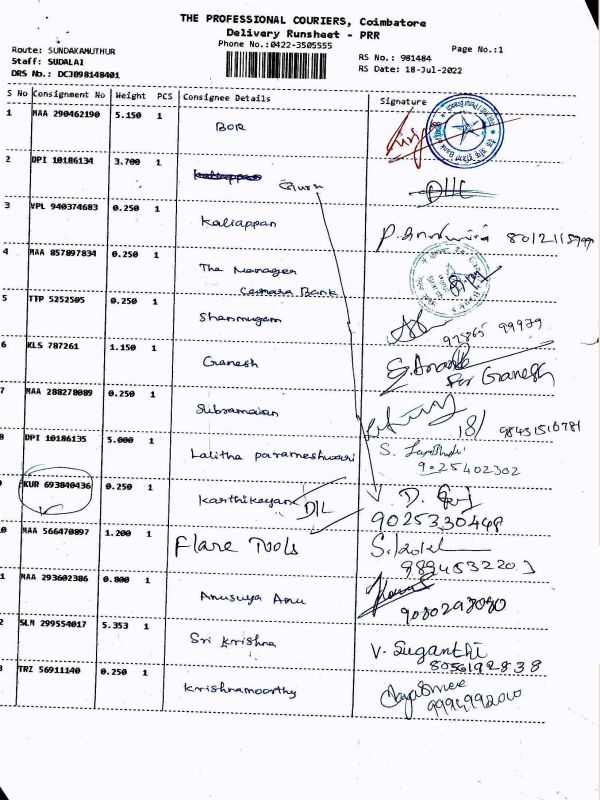 THE PROFESSIONAL COURIERS, Coimbatore
Delivery Runsheet - PRR
Phone No.:0422-3505555
Page No.:1
Route: SUNDAKAMUTHUR
Staff: SUDALAI
DRS No.: DCJB98148401
RS No.: 981484
RS Date: 18-Jul-2022
S No Consignment No Weight PCS Consignee Details Signature
1 MAA 290462190 5.150 1 BOR
2 DPI 10186134 3.700 1
3 VPL 940374683 0.250 1 Kaliappan
4 MAA 857897834 0.250 1 The Manager
Canara Bank
5 TTP 5252505 0.250 1 Shanmugam 92865 99979
6 KLS 787261 1.150 1 Ganesh S. Anand
for Ganesh
7 MAA 288278089 0.250 1 Subramaian 18/ 9843151678 1
8 DPI 10186135 5.000 1 Lalitha parameshwari S.
9025402302
KUR 693840436 0.250 1 Karthikeyan D/L D.
9025330448
0 MAA 566470897 1.200 1 Flare Tools S.
1 MAA 293602386 0.800 1 Anusuya Anu
9080298080
2 SLM 299554017 5.353 1 Sri Krishna V. Suganthi
8056192838
3 TRZ 56911140 0.250 1 Krishnamoorthy Jayasree
9994992000